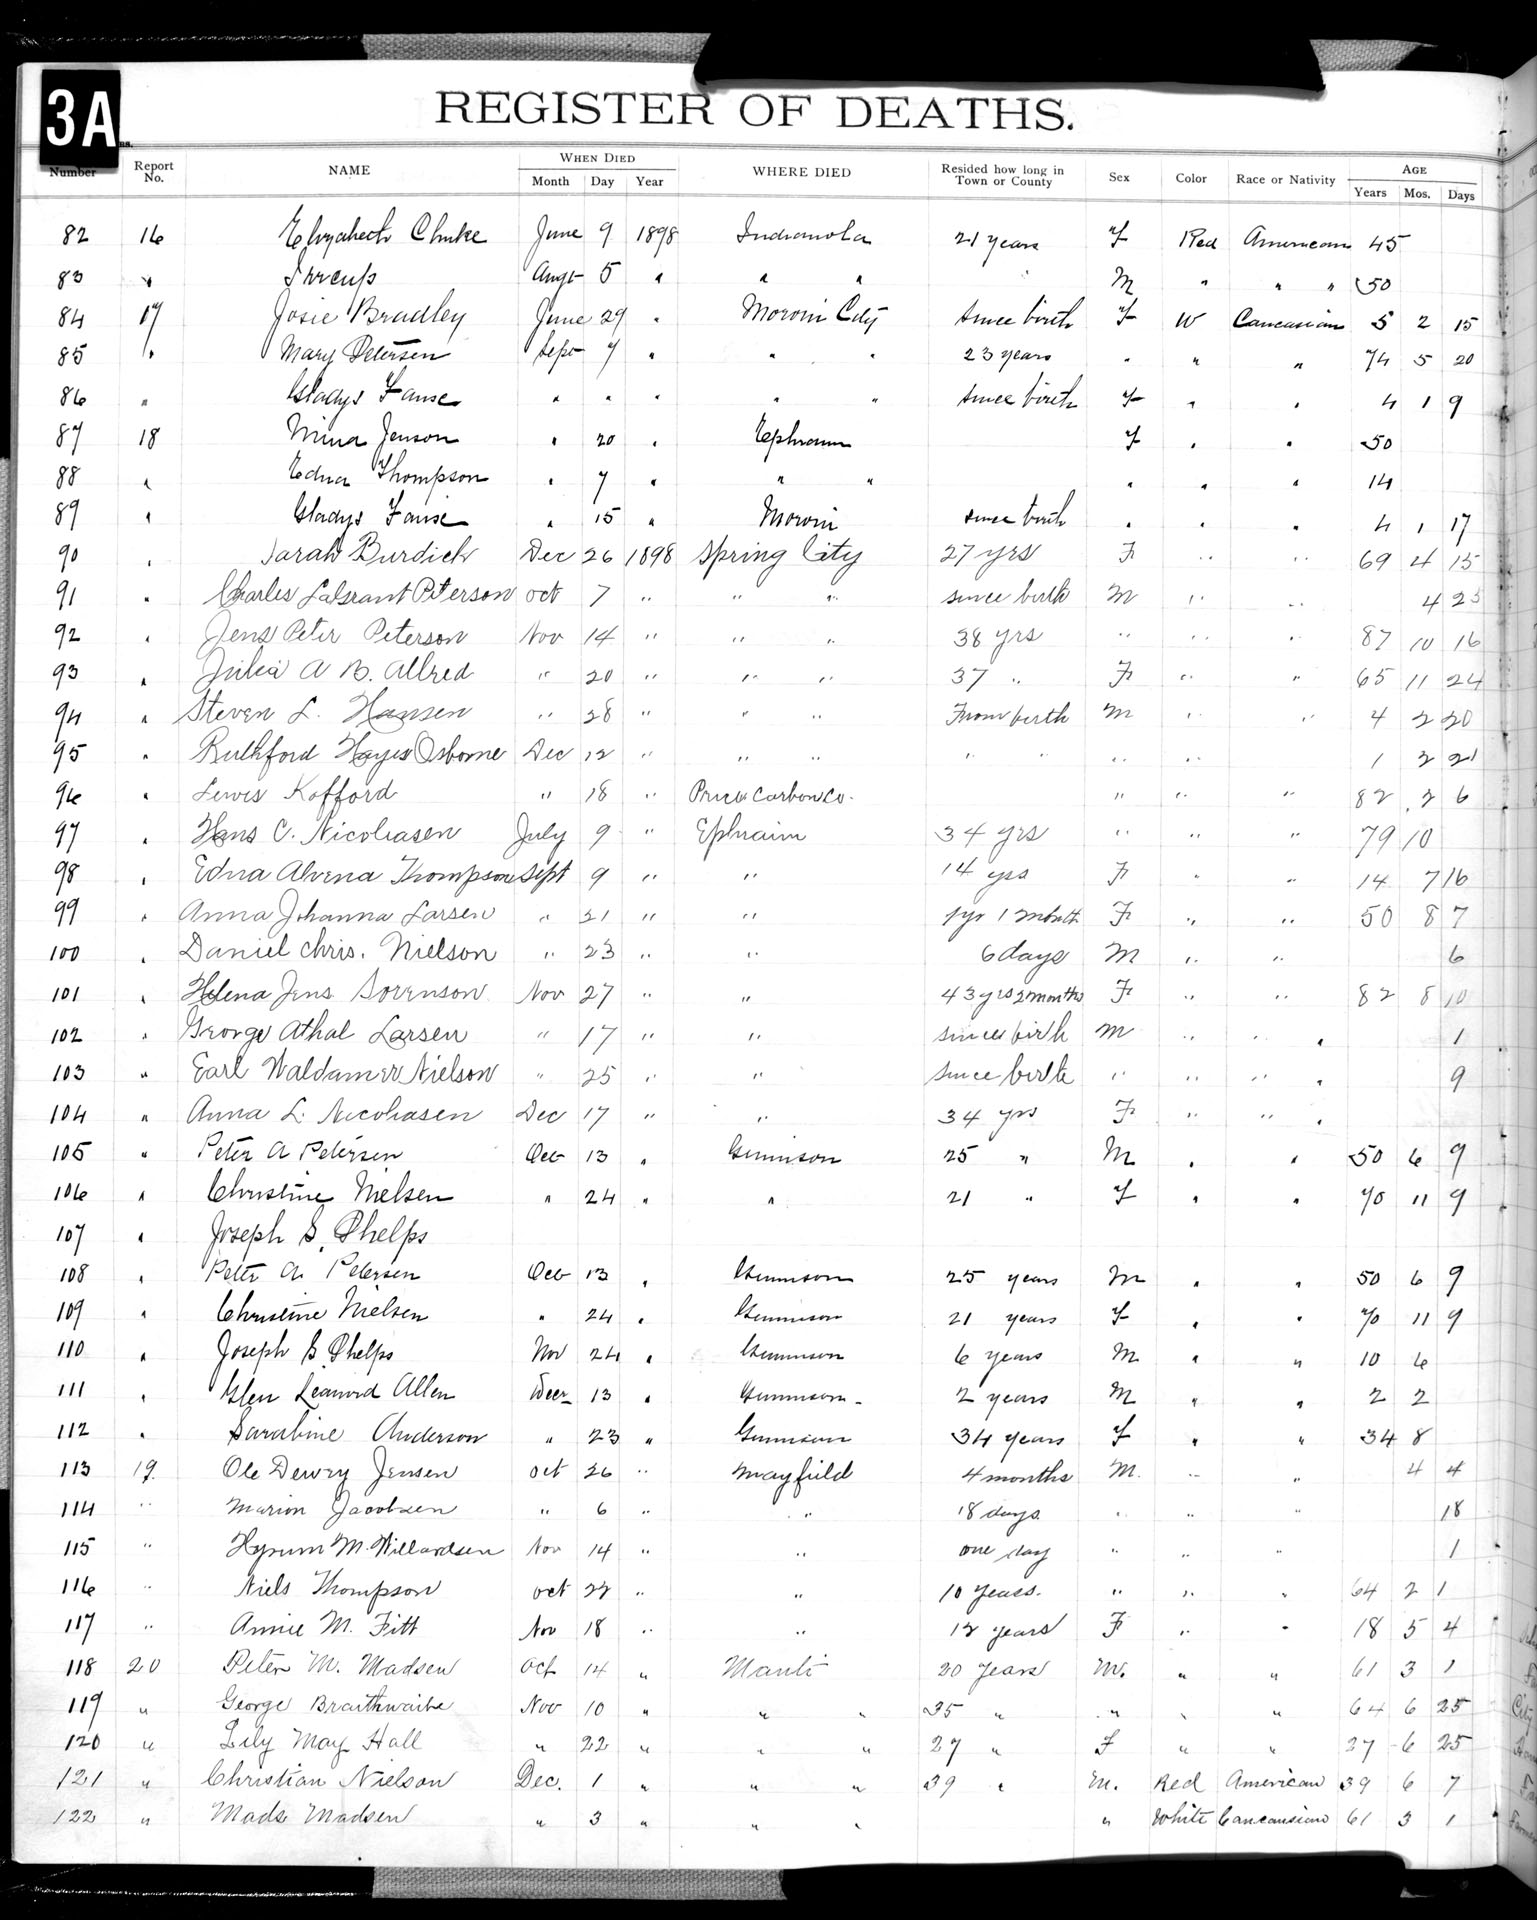 3A
REGISTER OF DEATHS.
Number Report No. NAME WHEN DIED Month Day Year WHERE DIED Resided how long in Town or County Sex Color Race or Nativity AGE Years Mos. Days
82 16 June 9 1898 Indianola 21 years F Red American 45
83 " Augt 5 " " " M " " " 50
84 17 Josie Bradley June 29 " Moroni City since birth F W Caucasian 5 2 15
85 " Mary Petersen Sept 7 " " " 23 years " " " 74 5 20
86 " Gladys Fause " " " " " since birth F " " 4 1 9
87 18 Mina Jenson " 20 " Ephraim F " " 50
88 " Edna Thompson " 7 " " " " " " 14
89 " Gladys Fause " 15 " Moroni since birth " " " 4 1 17
90 " Sarah Burdick Dec 26 1898 Spring City 27 yrs F " " 69 4 15
91 " Charles LaGrant Peterson oct 7 " " " since birth M " " 4 25
92 " Jens Peter Peterson Nov 14 " " " 38 yrs " " " 87 10 16
93 " Julia A B. Allred " 20 " " " 37 " F " " 65 11 24
94 " Steven L. Hansen " 28 " " " From birth M " " 4 2 20
95 " Ruthford Hayes Osborne Dec 12 " " " " " " " 1 2 21
96 " Lewis Kofford " 18 " Price Carbon Co. " " " 82 2 6
97 " Hans C. Nicoliasen July 9 " Ephraim 34 yrs " " " 79 10
98 " Edna Alvena Thompson Sept 9 " " 14 yrs F " " 14 7 16
99 " Anna Johanna Larsen " 21 " " 1 yr 1 month F " " 50 8 7
100 " Daniel Chris. Nielson " 23 " " 6 days M " " 6
101 " Helena Jens Sorenson Nov 27 " " 43 yrs 2 months F " " 82 8 10
102 " George Athal Larsen " 17 " " since birth M " " " 1
103 " Earl Waldamer Nielson " 25 " " since birth " " " " 9
104 " Anna L. Nicoliasen Dec 17 " " 34 yrs F " " "
105 " Peter A Petersen Oct 13 " Gunnison 25 " M " " 50 6 9
106 " Christine Nielsen " 24 " " 21 " F " " 70 11 9
107 " Joseph S. Phelps
108 " Peter A. Petersen Oct 13 " Gunnison 25 years M " " 50 6 9
109 " Christine Nielsen " 24 " Gunnison 21 years F " " 70 11 9
110 " Joseph S. Phelps Nov 24 " Gunnison 6 years M " " 10 6
111 " Glen Leanord Allen Decr 13 " Gunnison 2 years M " " 2 2
112 " Sarahine Anderson " 23 " Gunnison 34 years F " " 34 8
113 19 Ole Dewry Jensen Oct 26 " Mayfield 4 months M. " " 4 4
114 " Marion Jacobsen " 6 " " 18 days " " " 18
115 " Hyrum M. Willardsen Nov 14 " " one day " " " 1
116 " Niels Thompson oct 22 " " 10 years. " " " 64 2 1
117 " Annie M. Fitt Nov 18 " " 12 years F " " 18 5 4
118 20 Peter M. Madsen Oct 14 " Manti 20 years M. " " 61 3 1
119 " George Braithwaite Nov 10 " " " 35 " " " " 64 6 25
120 " Lily May Hall " 22 " " " 27 " F " " 27 6 25
121 " Christian Nielson Dec. 1 " " " 39 " M. Red American 39 6 7
122 " Mads Madsen " 3 " " " " White Caucausion 61 3 1